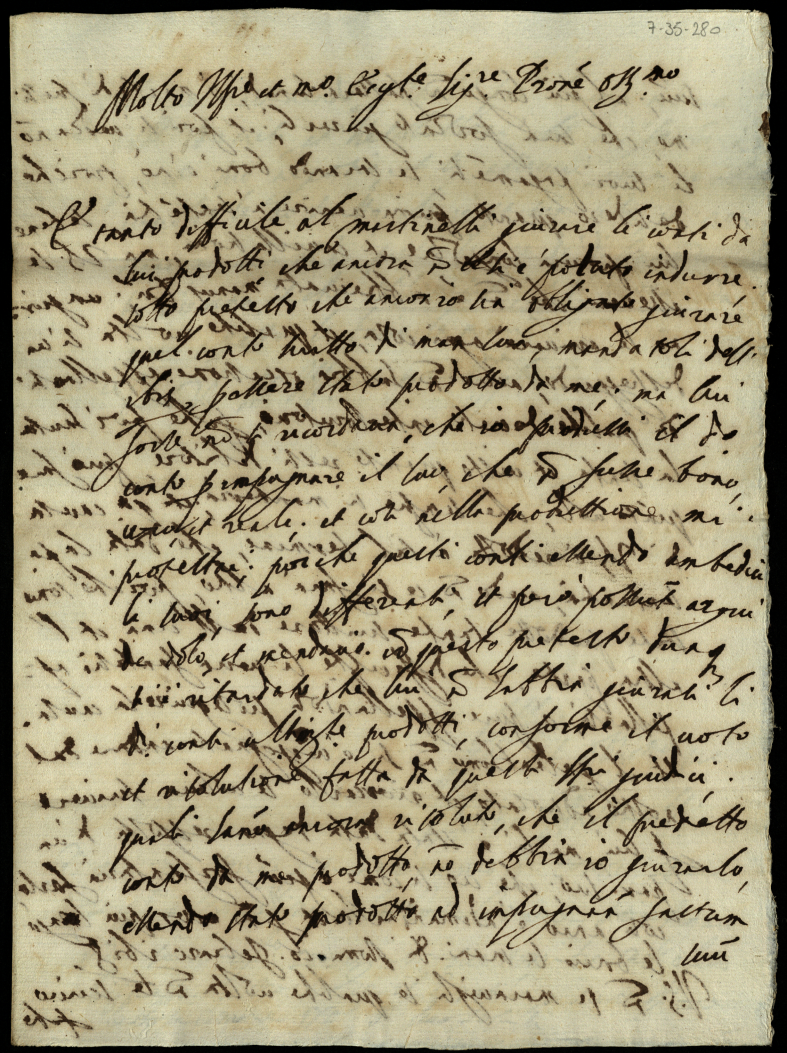 7-35-280
Molto Ill.re et m.o Ecc.te Sig.re Prone oss.mo
E tanto difficile al martinelli giurare li conti da
lui prodotti che ancora è potuto indurre
sotto pretesto che ancor io sia obligato giurare
quel conto tratto di man sua, mandatoli dell
essere stato prodotto da me. ma lui
forse nō si ricordava, che io produssi il do
conto p impugnare il suo, che nō fusse bono,
et reale. et cosi nella produttione mi
protestai, poiche questi conti essendo ambedui
li suoi, sono differenti, et però possunt argui
de dolo, et mendatio. cō questo pretesto dunq
si è ritardato, che lui nō habbia giurati li
di conti ultimte prodotti, conforme il voto
et risolutione fatta da quelli SSri giudici.
quali hanō ancora risoluto, che il predetto
conto da me prodotto, nō debbia io giurarlo,
essendo stato prodotto ad impugnanā factum
suū